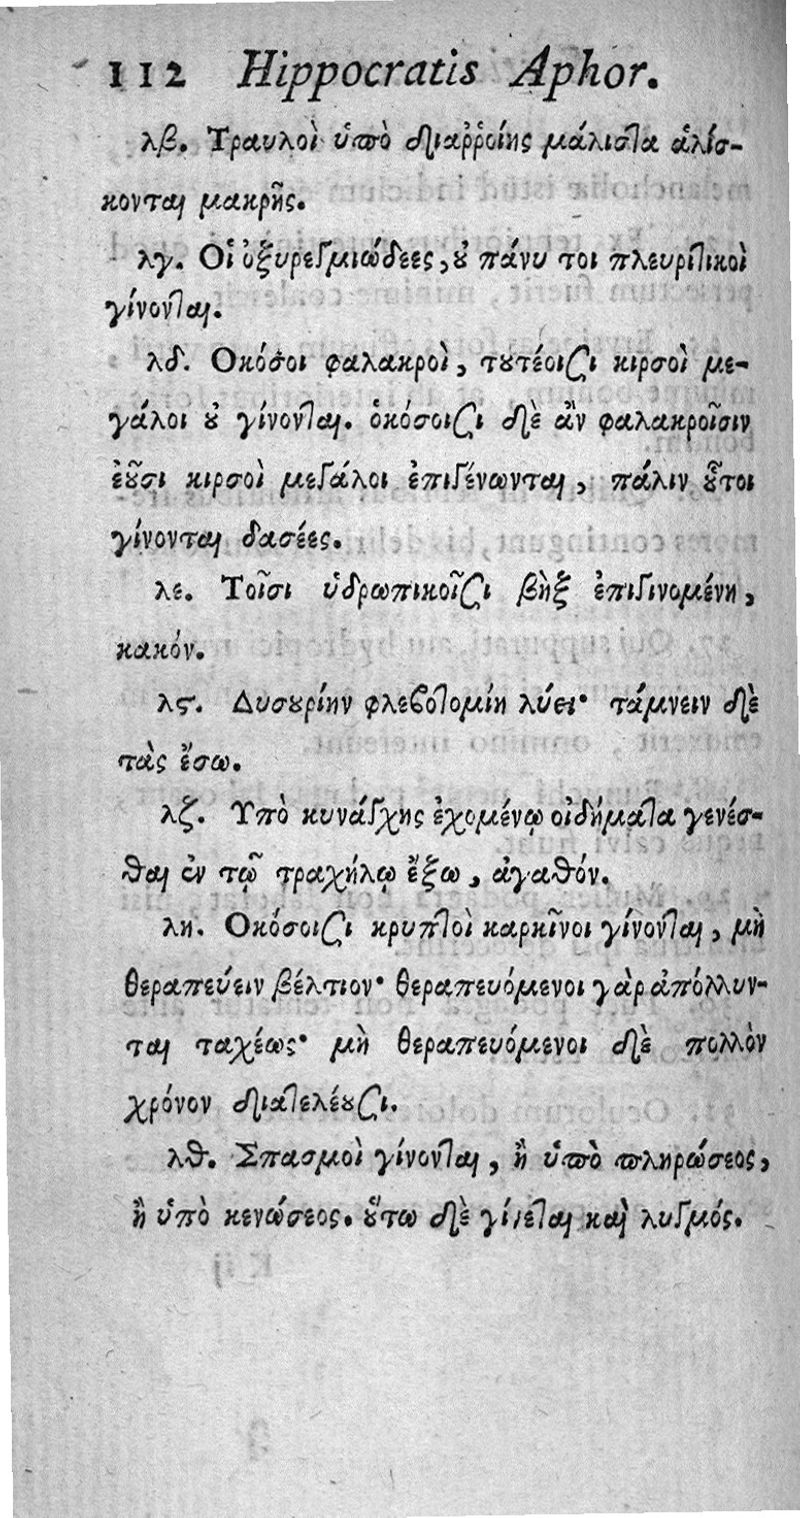 112 Hippocratis Aphor.
λβ. Τραυλοὶ ὑπὸ διαῤῥοίης μάλιστα ἁλίσ-
κονται μακρῆς.
λγ. Οἱ ὀξυρεγμιώδεες, οὐ πάνυ τοι πλευριτικοὶ
γίνονται.
λδ. Οκόσοι φαλακροὶ, τουτέοισι κιρσοὶ με-
γάλοι οὐ γίνονται. ὁκόσοισι δὲ ἂν φαλακροῖσιν
ἐοῦσι κιρσοὶ μεγάλοι ἐπιγένωνται, πάλιν οὗτοι
γίνονται δασέες.
λε. Τοῖσι ὑδρωπικοῖσι βὴξ ἐπιγινομένη,
κακόν.
λϛ. Δυσουρίην φλεβοτομίη λύει· τάμνειν δὲ
τὰς ἔσω.
λζ. Υπὸ κυνάγχης ἐχομένῳ οἰδήματα γενέσ-
θαι ἐν τῷ τραχήλῳ ἔξω, ἀγαθόν.
λη. Οκόσοισι κρυπτοὶ καρκῖνοι γίνονται, μὴ
θεραπεύειν βέλτιον· θεραπευόμενοι γὰρ ἀπόλλυν-
ται ταχέως· μὴ θεραπευόμενοι δὲ πολλὸν
χρόνον διατελέουσι.
λθ. Σπασμοὶ γίνονται, ἢ ὑπὸ πληρώσεος,
ἢ ὑπὸ κενώσεος. οὕτω δὲ γίνεται καὶ λυγμός.